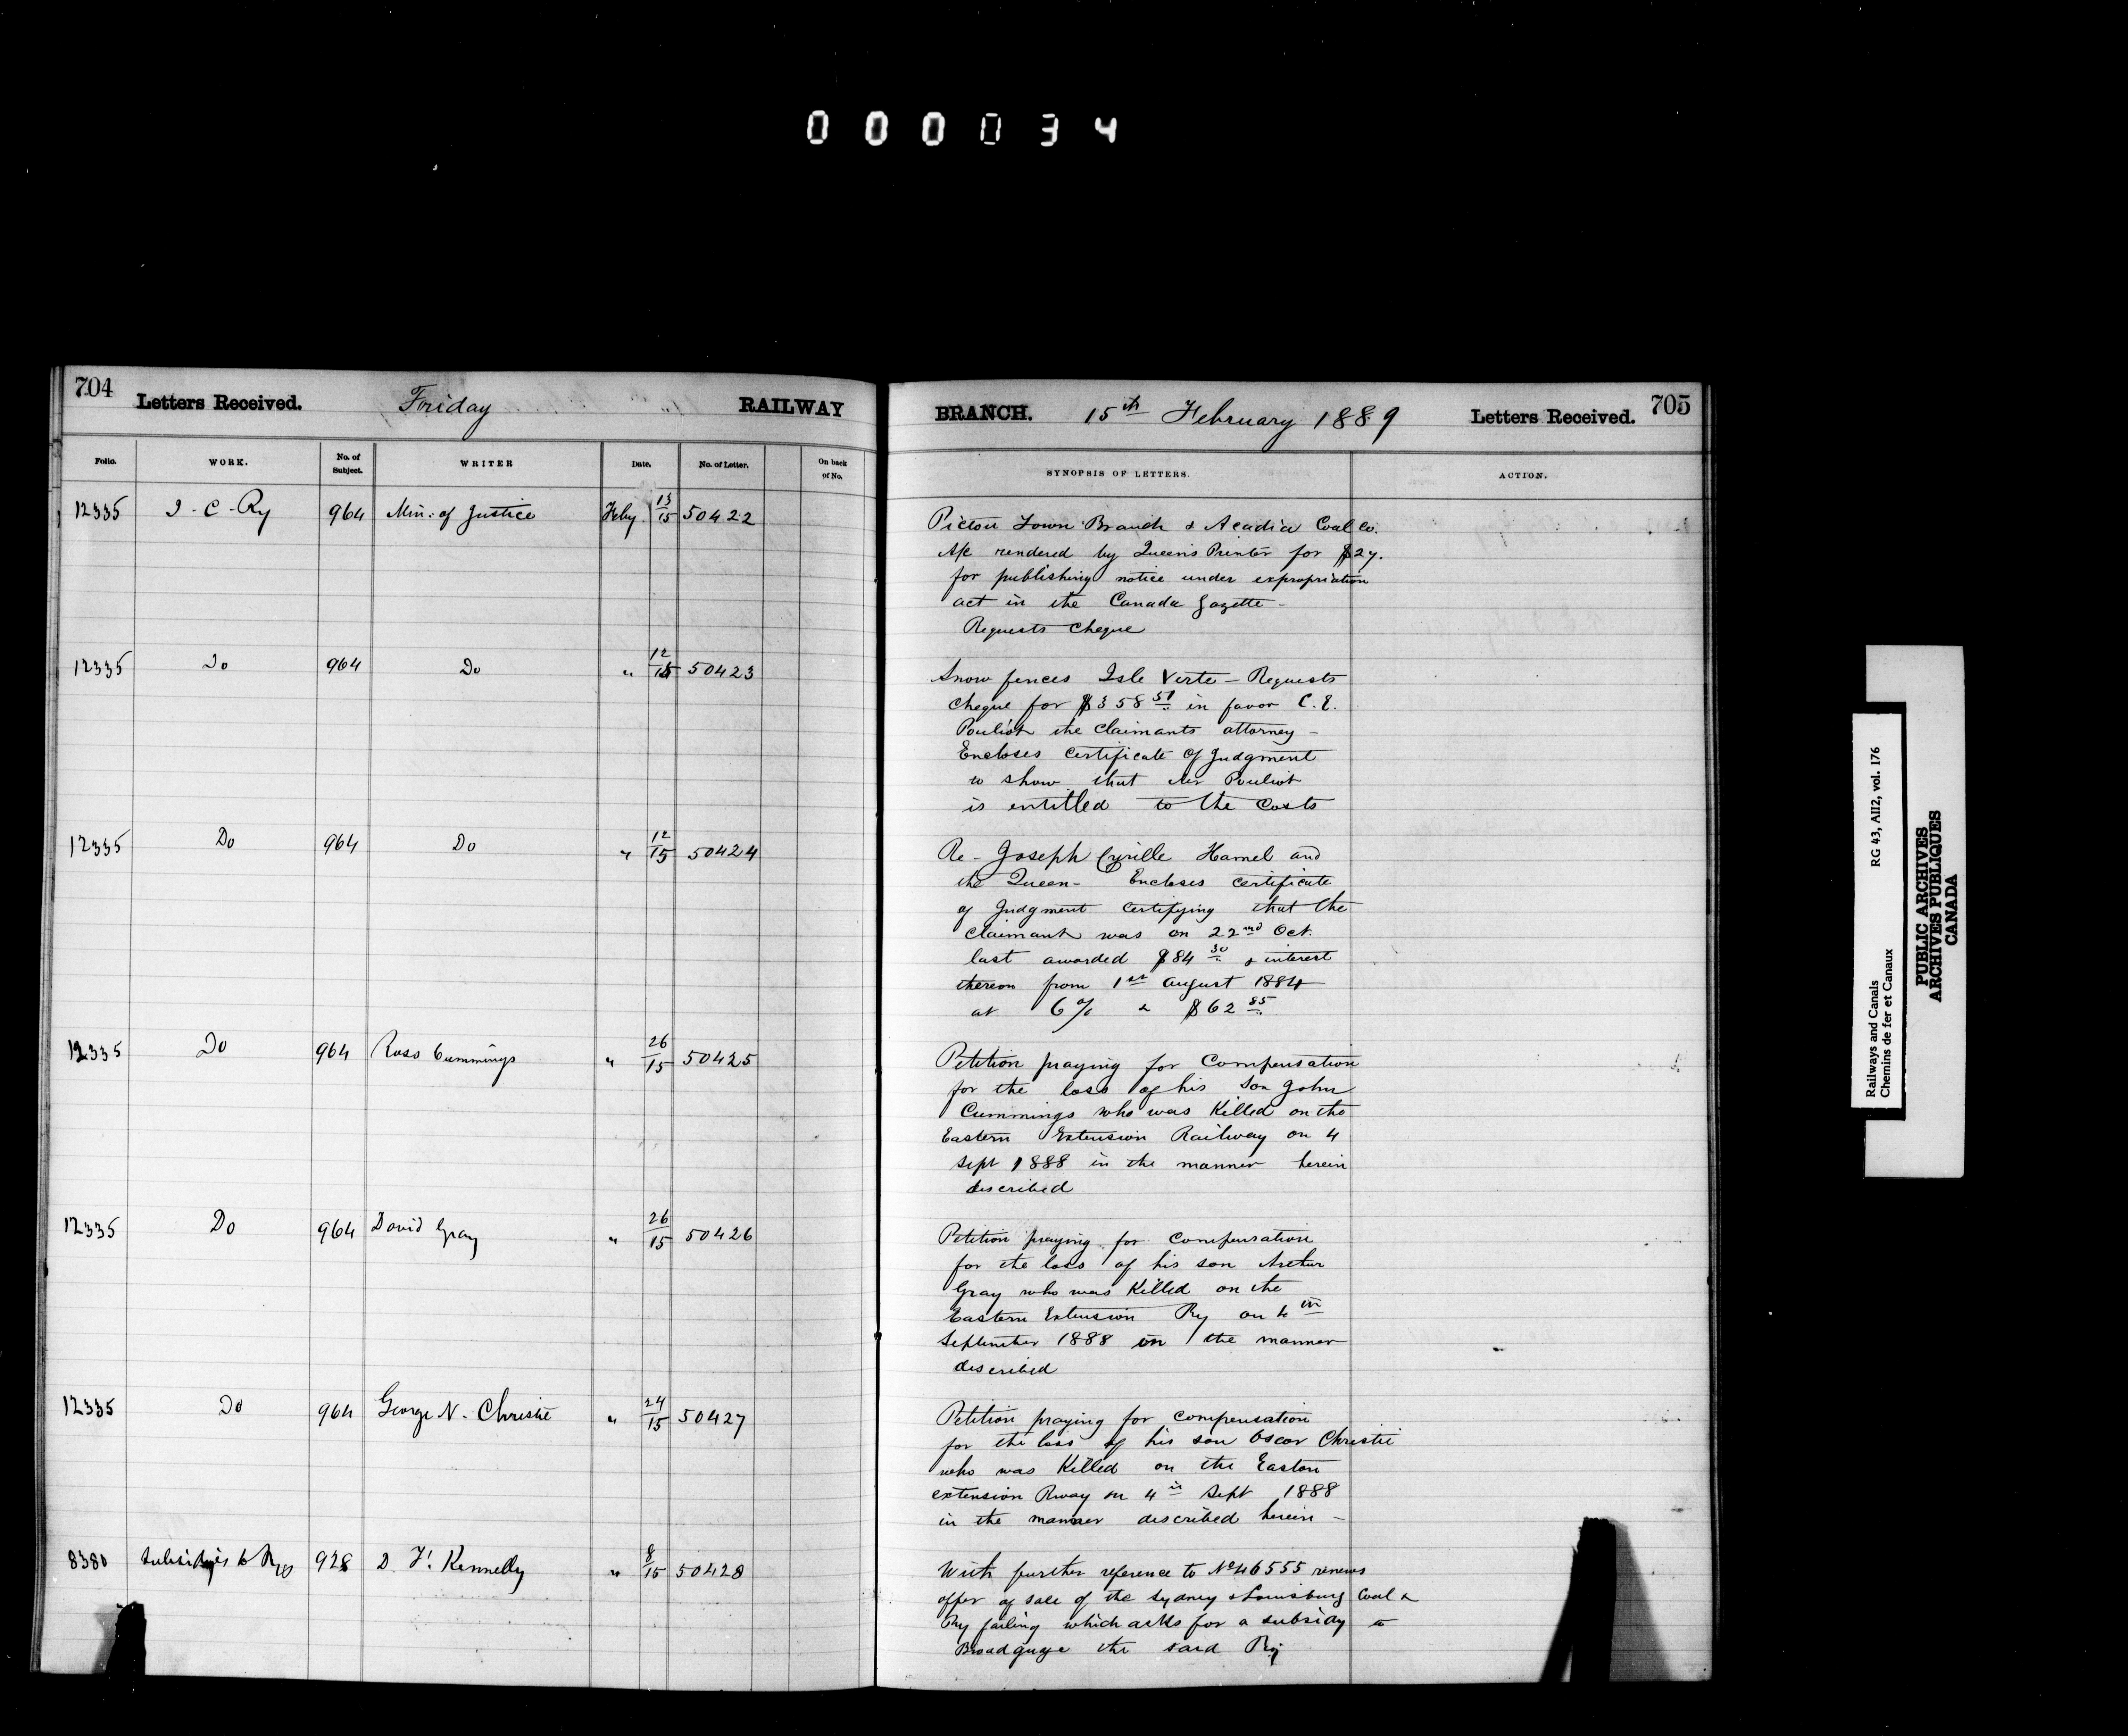 000034
704 Letters Received. Friday RAILWAY
Folio. WORK. No. of Subject. WRITER Date. No. of Letter. On back of No.
12335 I-C-Ry 964 Min: of Justice Feby 13/15 50422
12335 Do 964 Do " 12/15 50423
12335 Do 964 Do " 12/15 50424
12335 Do 964 Ross Cummings " 26/15 50425
12335 Do 964 David Gray " 26/15 50426
12335 Do 964 George N. Christie " 24/15 50427
8380 Subsidies to Rys 928 D. F. Kennelly " 8/15 50428
BRANCH. 15th February 1889 Letters Received. 705
SYNOPSIS OF LETTERS. ACTION.
Pictou Town Branch & Acadia Coal Co.
A/c rendered by Queen's Printer for $27.
for publishing notice under expropriation
act in the Canada Gazette -
Requests cheque
Snow fences Isle Verte - Requests
cheque for $358 51 in favor C. E.
Pouliot the claimants attorney -
Encloses certificate of Judgment
to show that Mr Pouliot
is entitled to the costs
Re - Joseph Cyrille Hamel and
the Queen - Encloses certificate
of Judgment certifying that the
claimant was on 22nd Oct.
last awarded $84 30 & interest
thereon from 1st August 1884
at 6% & $62 85
Petition praying for compensation
for the loss of his son John
Cummings who was killed on the
Eastern Extension Railway on 4
Sept 1888 in the manner herein
described
Petition praying for compensation
for the loss of his son Arthur
Gray who was killed on the
Eastern Extension Ry on 4th
September 1888 in the manner
described
Petition praying for compensation
for the loss of his son Oscar Christie
who was killed on the Eastern
extension Rway on 4th Sept 1888
in the manner described herein -
With further reference to No 46555 renews
offer of sale of the Sydney & Louisburg Coal &
Ry failing which asks for a subsidy to
Broadguge the said Ry
Railways and Canals RG 43, AII2, vol. 176
Chemins de fer et Canaux
PUBLIC ARCHIVES
ARCHIVES PUBLIQUES
CANADA